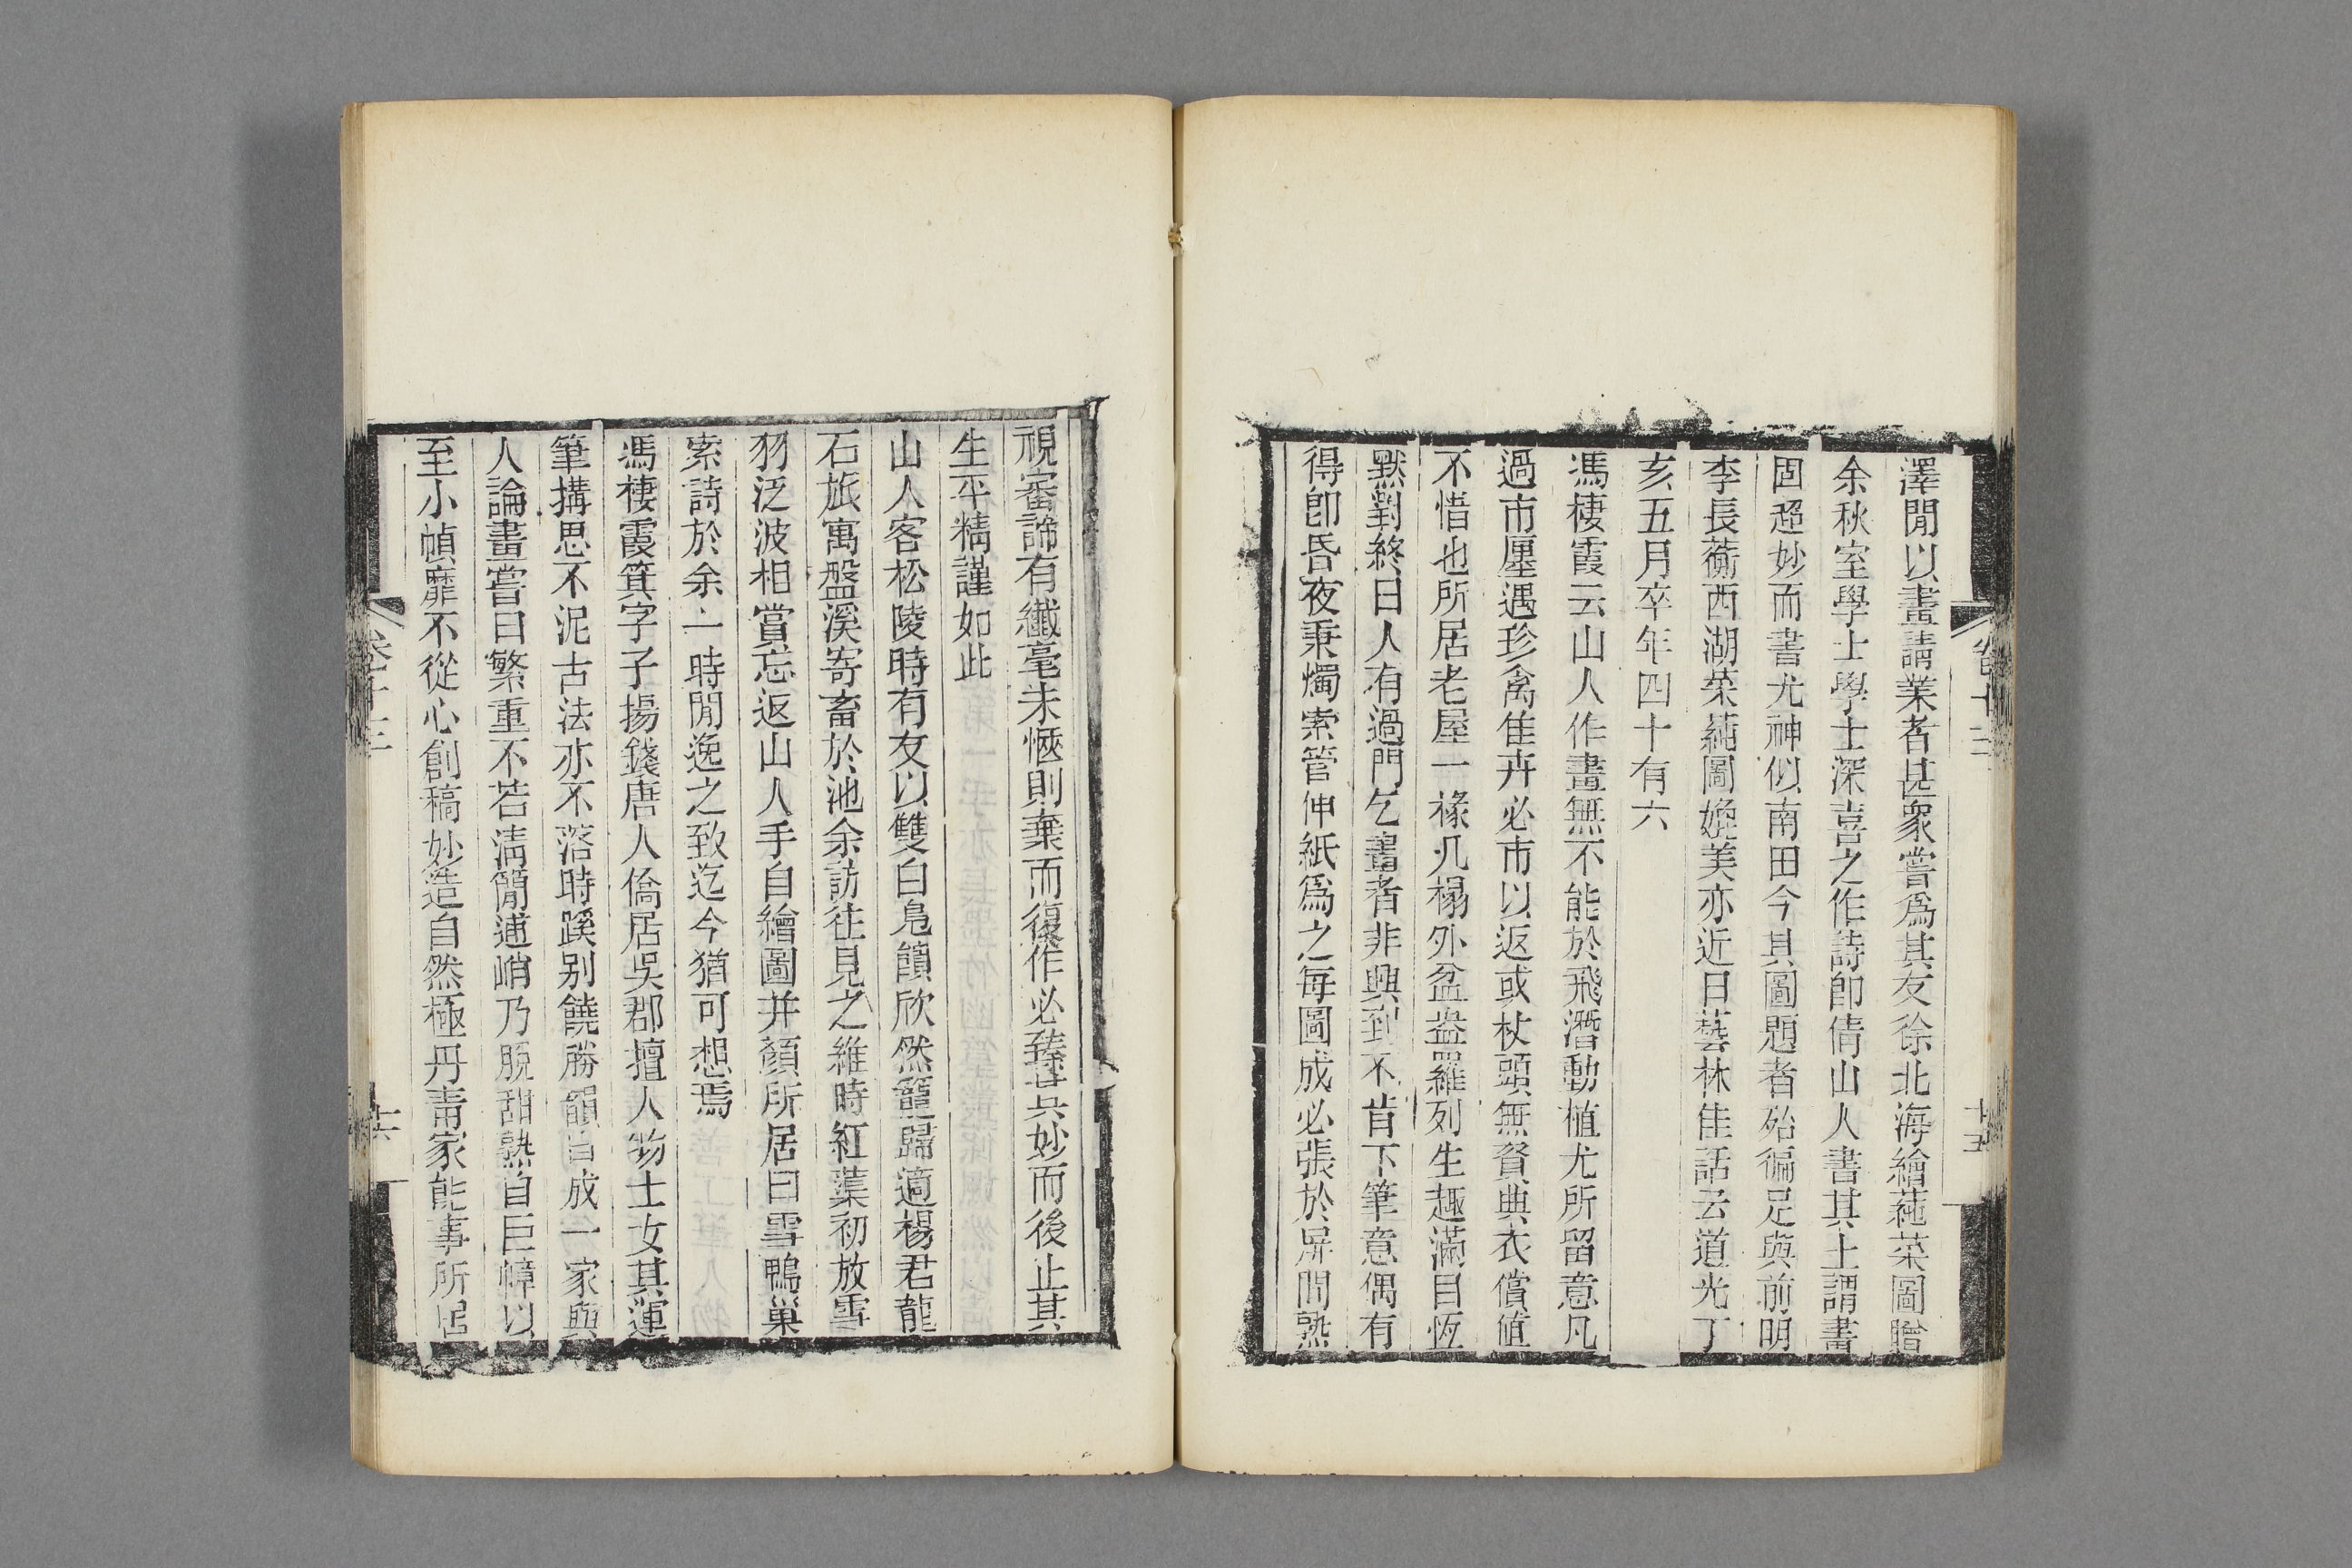 澤閒以畫請業者甚衆嘗爲其友徐北海繪蒓菜圖贈
余秋室學士學士深喜之作詩卽倩山人書其上謂畫
固超妙而書尤神似南田今其圖題者殆徧足與前明
李長蘅西湖菜蒓圖媲美亦近日藝林佳話云道光丁
亥五月卒年四十有六
馮棲霞云山人作畫無不能於飛潛動植尤所留意凡
過市廛遇珍禽隹卉必市以返或杖頭無貲典衣償値
不惜也所居老屋一椽几榻外盆盎羅列生趣滿目恆
默對終日人有過門乞畫者非興到不肯下筆意偶有
得卽昏夜秉燭索管伸紙爲之每圖成必張於屏間熟
卷十二
十五
視審諦有纖毫未愜則棄而復作必臻其妙而後止其
生平精謹如此
山人客松陵時有友以雙白鳧饋欣然籠歸適楊君龍
石旅寓盤溪寄畜於池余訪往見之維時紅蕖初放雪
羽泛波相賞忘返山人手自繪圖并顏所居曰雪鴨巢
索詩於余一時閒逸之致迄今猶可想焉
馮棲霞箕字子揚錢唐人僑居吳郡擅人物士女其運
筆搆思不泥古法亦不落時蹊别饒勝韻自成一家與
人論畫嘗曰繁重不若淸簡逋峭乃脫甜熟自巨幛以
至小幀靡不從心創稿妙造自然極丹靑家能事所居
卷十二
十六